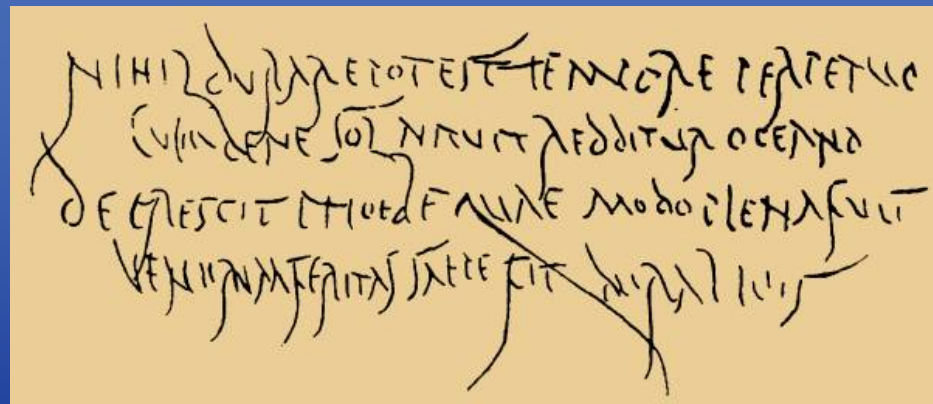 NIHIL DURARE POTEST TEMPORE PERPETUO
CUM BENE SOL NITUIT REDDITUR OCEANO
DECRESCIT PHOEBE QUAE MODO PLENA FUIT
VENERUM FERITAS SAEPE FIT AURA LEVIS